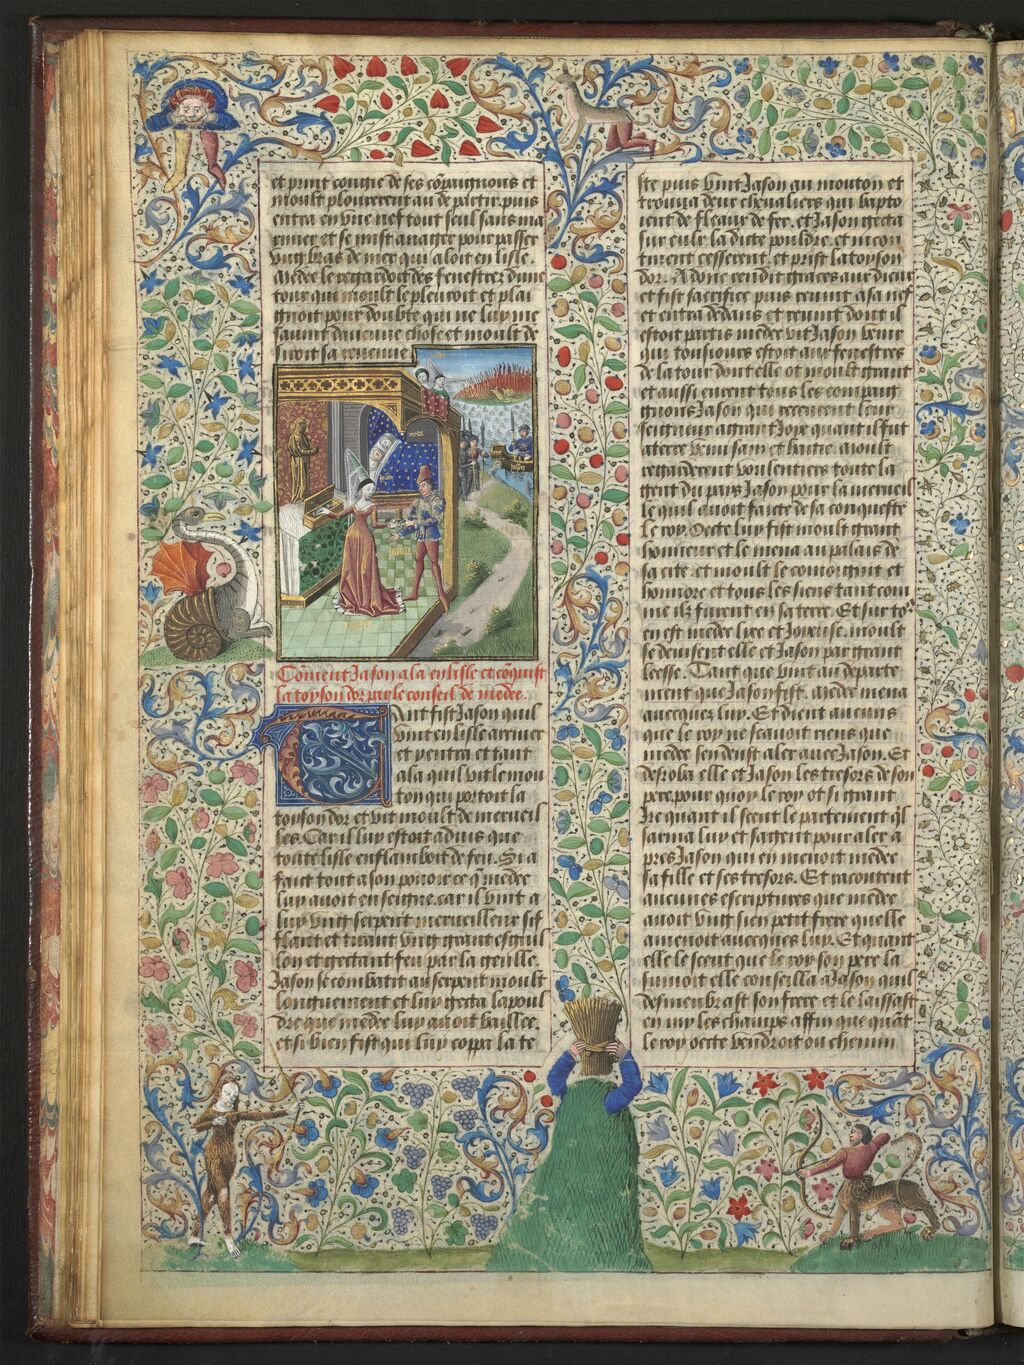 et print congie de ses cõpaignons et
moult plourerent au departir. puis
entra en vne nef tout seul sans ma
ronnier et se mist a nagier pour passer
vng bras de mer qui aloit en lisle.
Medee le regardoit des fenestrez dune
tour qui moult le pleuroit et plai
gnoit pour doubte qui ne luy me
sauint daucune chose et moult de
siroit sa reuenue
medee
Jason
Jason
medee
Jason
Cõment Jason ala en lisle et cõquist
la toyson dor par le conseil de medee.
Tant fist Jason quil
vint en lisle arriuer
et y entra et tant
ala quil vit le mou
ton qui portoit la
toyson dor et vit moult de merueil
les. Car il luy estoit aduis que
toute lisle enflamboit de feu. Si a
fait tout a son pouoir ce q̃ medee
luy auoit enseigne. car il vint a
luy vng serpent merueilleux sif
flant et tirant vng grant esguil
lon et gectant feu par la geulle.
Jason se combatit au serpent moult
longuement et luy gecta la poul
dre que medee luy auoit baillee.
et si bien fist qui luy coppa la te
ste puis vint Jason au mouton et
trouua deux cheualiers qui bapto
ient de fleaux de fer. et Jason gecta
sur eulx la dicte pouldre. et incon
tinent cesserent et prist la toyson
dor. Adonc rendit graces aux dieux
et fist sacrifice puis reuint a sa nef
et entra dedans et reuint dont il
estoit partis medee vit Jason venir
qui tousiours estoit aux fenestres
de la tour dont elle ot moult grant
et aussi eurent tous les compaig
gnons Jason qui receurent leur
seigneur a grant Joye quant il fut
a terre venu sain et haitie. moult
regarderent voulentiers toute la
gent du pays Jason pour la merueil
le quil auoit faicte de sa conqueste
le roy Oecte luy fist moult grant
honneur et le mena au palais de
sa cite et moult le conroignt et
honnore et tous les siens tant com
me ilz furent en sa terre. Et sur to9
en est medee lyee et Joyeuse. moult
se deuisent elle et Jason par grant
leesse. Tant que vint au departe
ment que Jason fist. medee mena
auecquez luy. Et dient aucuns
que le roy ne scauoit riens que
medee sen deust aler auec Jason. Et
desroba elle et Jason les tresors de son
pere. pour quoy le roy ot si grant
Ire quant il sceut le partement q̃l
sarma luy et sa gent pour aler a
pres Jason qui en menoit medee
sa fille et ses tresors. Et racontent
aucunes escriptures que medee
auoit vng sien petit frere quelle
amenoit auecques luy. Et quant
elle le sceut que le roy son pere la
suiuoit elle conseilla a Jason quil
desmenbrast son frere et le laissast
en my les champs affin que quãt
le roy oecte vendroit ou chemin